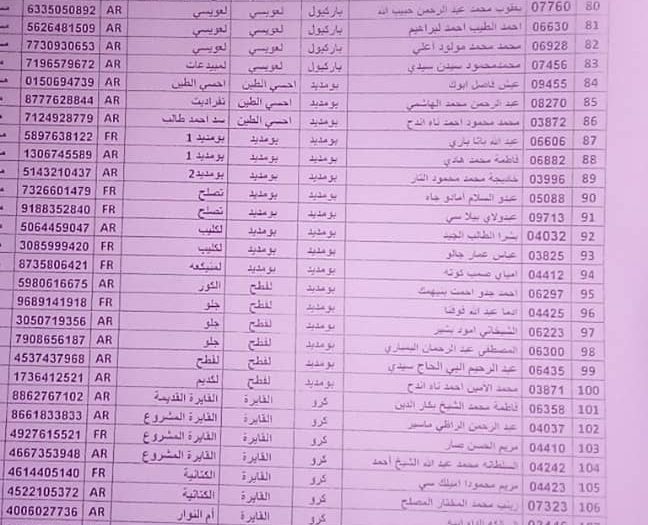 80 07760 يعقوب محمد عبد الرحمن حبيب الله باركيول لعويسي لعويسي AR 6335050892
81 06630 احمد الطيب احمد لبراهيم باركيول لعويسي لعويسي AR 5626481509
82 06928 محمد محمد مولود اعلي باركيول لعويسي لعويسي AR 7730930653
83 07456 محمدمحمود سيدن سيدي باركيول لعويسي لمبيدعات AR 7196579672
84 09455 عيش فاضل ابوك بومديد احسي الطين احسي الطين AR 0150694739
85 08270 عبد الرحمن محمد الهاشمي بومديد احسي الطين تفراديت AR 8777628844
86 03872 محمد محمود احمد ناه اندح بومديد احسي الطين سد احمد طالب AR 7124928779
87 06606 عبد الله باتا باري بومديد بومديد بومديد 1 FR 5897638122
88 06882 فاطمة محمد هادي بومديد بومديد بومديد 1 AR 1306745589
89 03996 خاديجة محمد محمود النار بومديد بومديد بومديد2 AR 5143210437
90 05088 عبدو السلام أمادو جاه بومديد بومديد تصلح FR 7326601479
91 09713 عبدولاي بيلا سي بومديد بومديد تصلح FR 9188352840
92 04032 بشرا الطالب الجيد بومديد بومديد لكليب AR 5064459047
93 03825 عباس عمار جالو بومديد بومديد لكليب FR 3085999420
94 04412 امباي صمب توته بومديد بومديد لمنيكعه FR 8735806421
95 06297 احمد جدو احمت بومديد لفطح الكور AR 5980616675
96 04425 ادما عبد الله فوفنا بومديد لفطح جلو FR 9689141918
97 06223 الشيخاني امود بشير بومديد لفطح جلو AR 3050719356
98 06300 المصطفى عبد الرحمان اليساري بومديد لفطح جلو AR 7908656187
99 06435 عبد الرحيم البي الحاج سيدي بومديد لفطح لفطح AR 4537437968
100 03871 محمد الامين احمد ناه اندح بومديد لفطح لكديم AR 1736412521
101 06358 فاطمة محمد الشيخ بكار الدين كرو الغايرة الغايرة القديمة AR 8862767102
102 04037 عبد الرحمن الراظي ماسير كرو الغايرة الغايرة المشروع AR 8661833833
103 04410 مريم الحسن صار كرو الغايرة الغايرة المشروع FR 4927615521
104 04242 السلطانه محمد عبد الله الشيخ أحمد كرو الغايرة الغايرة المشروع AR 4667353948
105 04423 مريم محمودا اميلك سي كرو الغايرة الكنانية FR 4614405140
106 07323 زينب محمد المختار المصلح كرو الغايرة الكنانية AR 4522105372
كرو الغايرة أم النوار AR 4006027736